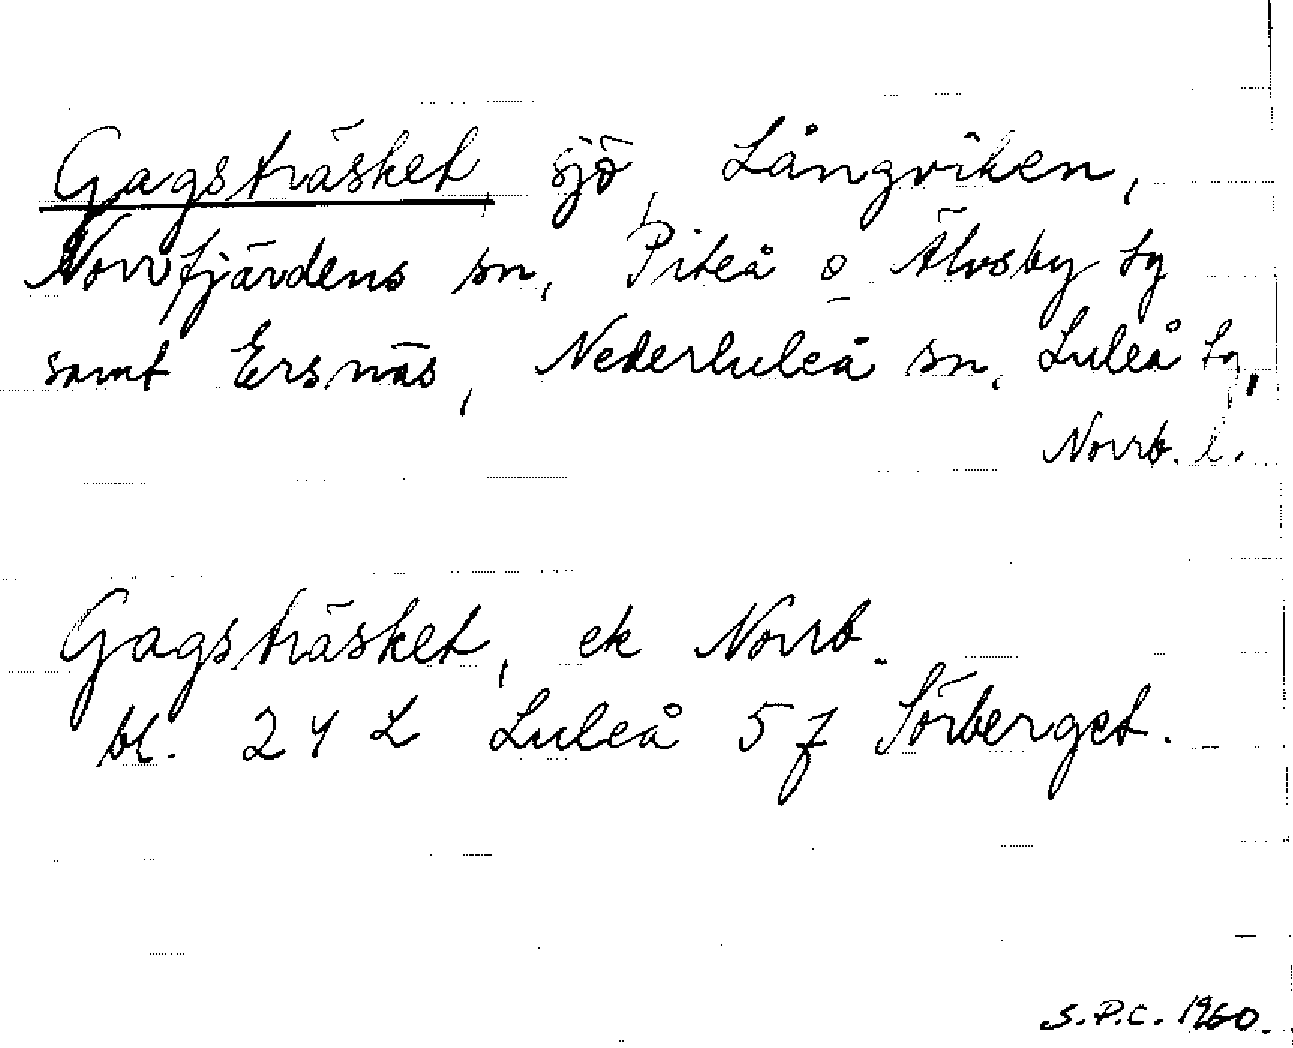 Gagsträsket, sjö, Långviken,
Norrfjärdens sn, Piteå o Älvsby tg
samt Ersnäs, Nederluleå sn, Luleå tg,
Norrb. l.
Gagsträsket, ek Norrb.
bl. 24 L Luleå 5 f Sörberget.
S.P.C. 1960.